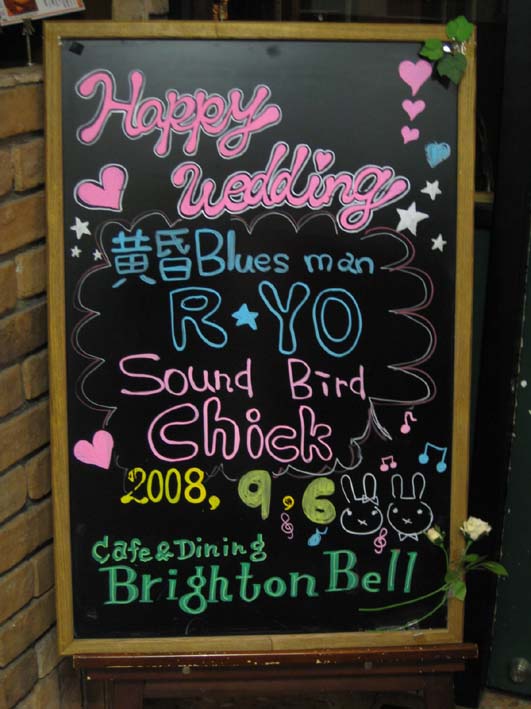 Happy
Wedding
黄昏Blues man
R★YO
Sound Bird
Chick
2008, 9,6
Cafe&Dining
Brighton Bell